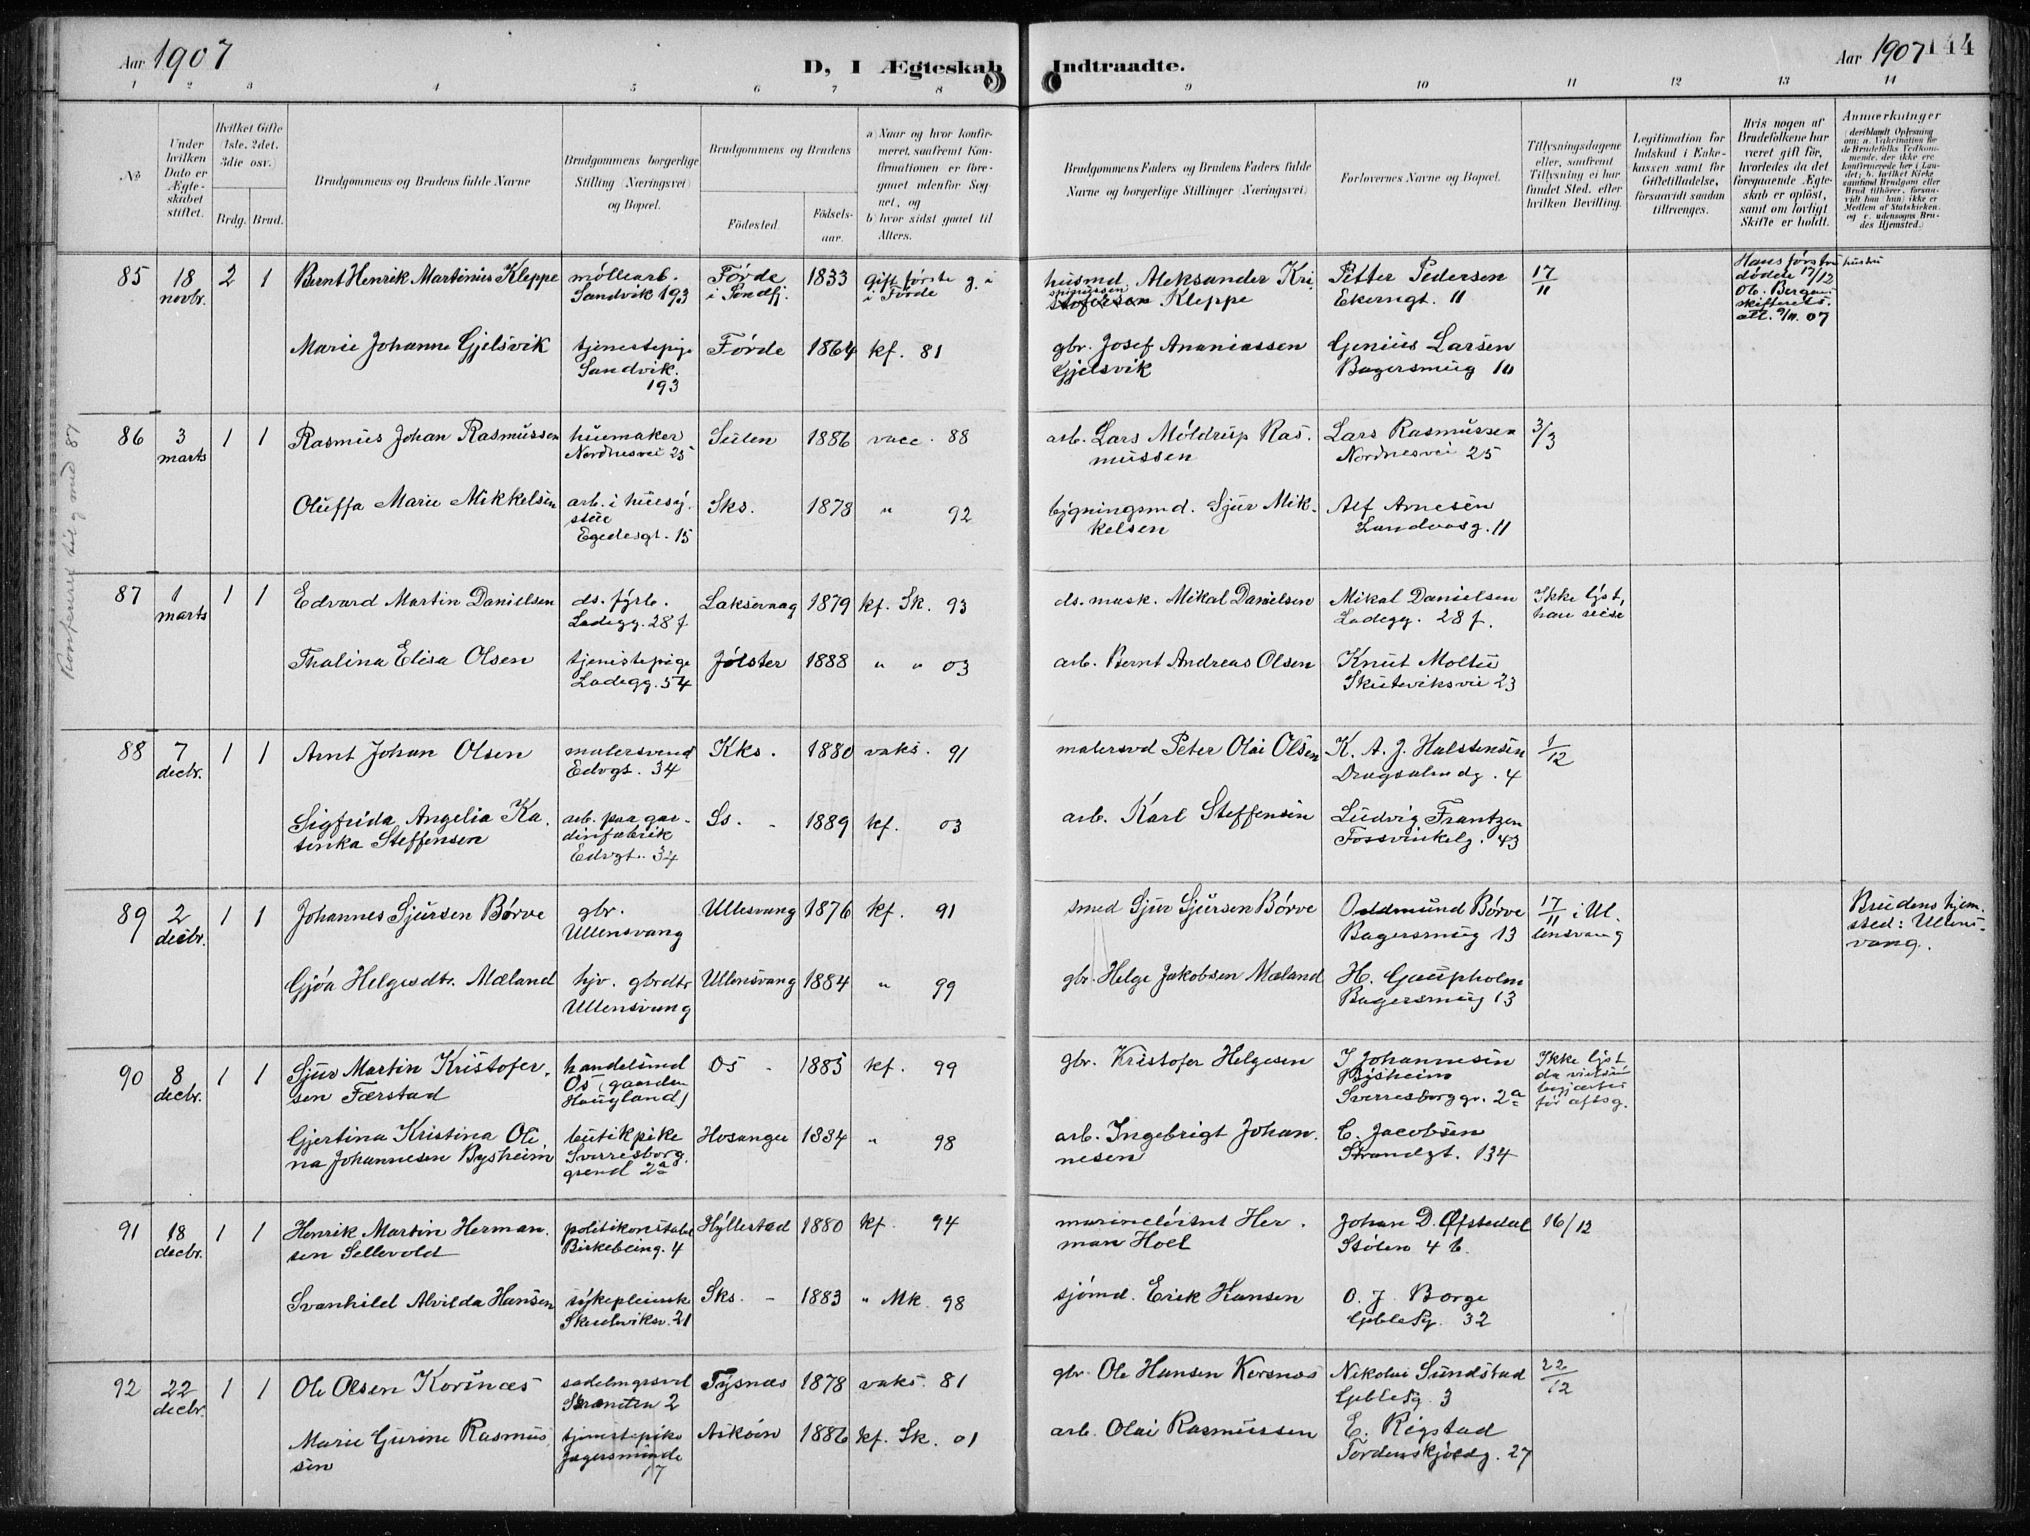 Aar 1907
D, I Ægteskab Indtraadte.
Aar 1907 144
1 2 3 4 5 6 7 8 9 10 11 12 13 14
No
Under hvilken Dato er Ægteskabet stiftet.
Hvilket Gifte (1ste, 2det, 3die osv.)
Brdg. Brud.
Brudgommens og Brudens fulde Navne
Brudgommens borgerlige Stilling (Næringsvei) og Bopæl.
Brudgommens og Brudens
Fødested.
Fødsels-aar.
a) Naar og hvor konfirmeret, samfremt Konfirmationen er foregaaet udenfor Sognet, og
b) hvor sidst gaaet til Alters.
Brudgommens Faders og Brudens Faders fulde Navne og borgerlige Stillinger (Næringsvei)
Forlovernes Navne og Bopæl.
Tillysningsdagene eller, samfremt Tillysning ei har fundet Sted, efter hvilken Bevilling.
Legitimation for Indskud i Enkekassen samt for Giftetilladelse, forsaavidt saadan tiltrænges.
Hvis nogen af Brudefolkene har været gift før, hvorledes da det foregaaende Ægteskab er opløst, samt om lovligt Skifte er holdt.
Anmærkninger
85 18 novbr. 2 1 Bernt Henrik Martinus Kleppe møllearb. Sandvik 193 Förde i Söndfj. 1833 gift første g. i i Förde
husmd Aleksander Kri Kleppe Petter Pedersen Ekerngt. 11 17/11
Hans første døde 17/12 Ob. Bergens skifterets att. 9/11. 07
Marie Johanne Gjelsvik tjenestepige Sandvik. 193 Förde 1864 kf. 81
gbr. Josef Ananiassen Gjelsvik Genius Larsen Bagersmug 10
Konfereret til og med 87
86 3 marts 1 1 Rasmus Johan Rasmussen huemaker Nordnesvei 25 1886 vacc. 88
arb. Lars Möldrup Rasmussen Lars Rasmussen Nordnesvei 25 3/3
Oluffa Marie Mikkelsen arb. i huesystue Egedesgt. 15 Sks. 1878 " 92
bygningsmd. Sjur Mikkelsen Alf Arnesen 11
87 1 marts 1 1 Edvard Martin Danielsen ds. fyrb. Ladegg. 28 f Laksevaag 1879 kf. Sk. 93
ds. mask. Mikal Danielsen Mikal Danielsen Ladegg. 28 f. Ikke lyst, han reise
Thalina Elisa Olsen tjenestepige Ladegg. 54 Jølster 1888 " " 03
arb. Bernt Andreas Olsen Knut Moltu Skuteviksvei 23
88 7 decbr. 1 1 Arnt Johan Olsen malersvend Edvgt. 34 Kks. 1880 vaks. 91
malersvd Peter Olai Olsen K. A. J. Halstensen Dragsalmdg. 4 1/12
Sigfrida Angelia Katinka Steffensen arb. paa gardinfabrik Edvgt. 34 Ss. - 1889 kf. 03
arb. Karl Steffensen Ludvig Frantzen Fossvinkelg. 43
89 2 decbr. 1 1 Johannes Sjursen Børve gbr. Ullensvang Ullesvang 1876 kf. 91
smed Sjur Sjursen Børve Oddmund Børve Bagersmug 13 17/11 i Ullensvang
Brudens hjemsted: Ullensvang.
Gjøa Helgesdtr. Mæland hjv. gbrdtr Ullensvang Ullensvang 1884 " 99
gbr. Helge Jakobsen Mæland H. Gaupholm Bagersmug 13
90 8 decbr. 1 1 Sjur Martin Kristofersen Færstad handelsmd Os (gaarden Haugland) Os - 1885 kf. 99
gbr. Kristofer Helgesen J. Johannesen Bysheim Sverresborggr. 2a Ikke lyst da
Gjertina Kristina Olina Johannesen Bysheim butikpike Sverresborg. grend 2a Hosanger 1884 " 98
arb. Ingebrigt Johannesen C. Jacobsen Strandgt. 134
91 18 decbr. 1 1 Henrik Martin Hermansen Sellevold politikonstabel Birkebeing. 4 Hyllestad 1880 kf. 94
Herman Hoel Johan D. Øfstedal Stølen 4 b. 16/12
Svanhild Alvilda Hansen sykepleierske Skuteviksv. 21 Sks. - 1883 " Mk. 98
sjømd. Erik Hansen O. J. Borge Gjeblesg. 32
92 22 decbr. 1 1 Ole Olsen Korsnæs sadelmgrsvd 2 Tysnæs 1878 vaks. 81
gbr. Ole Hansen Korsnæs Nikolai Sundstad Gjeblesg. 3 22/12
Marie Gurine Rasmussen tjenestepike Jægersminde 7 Askøen 1886 kf. Sk. 01
arb. Olai Rasmussen E. Rigstad Tordenskjoldg. 27